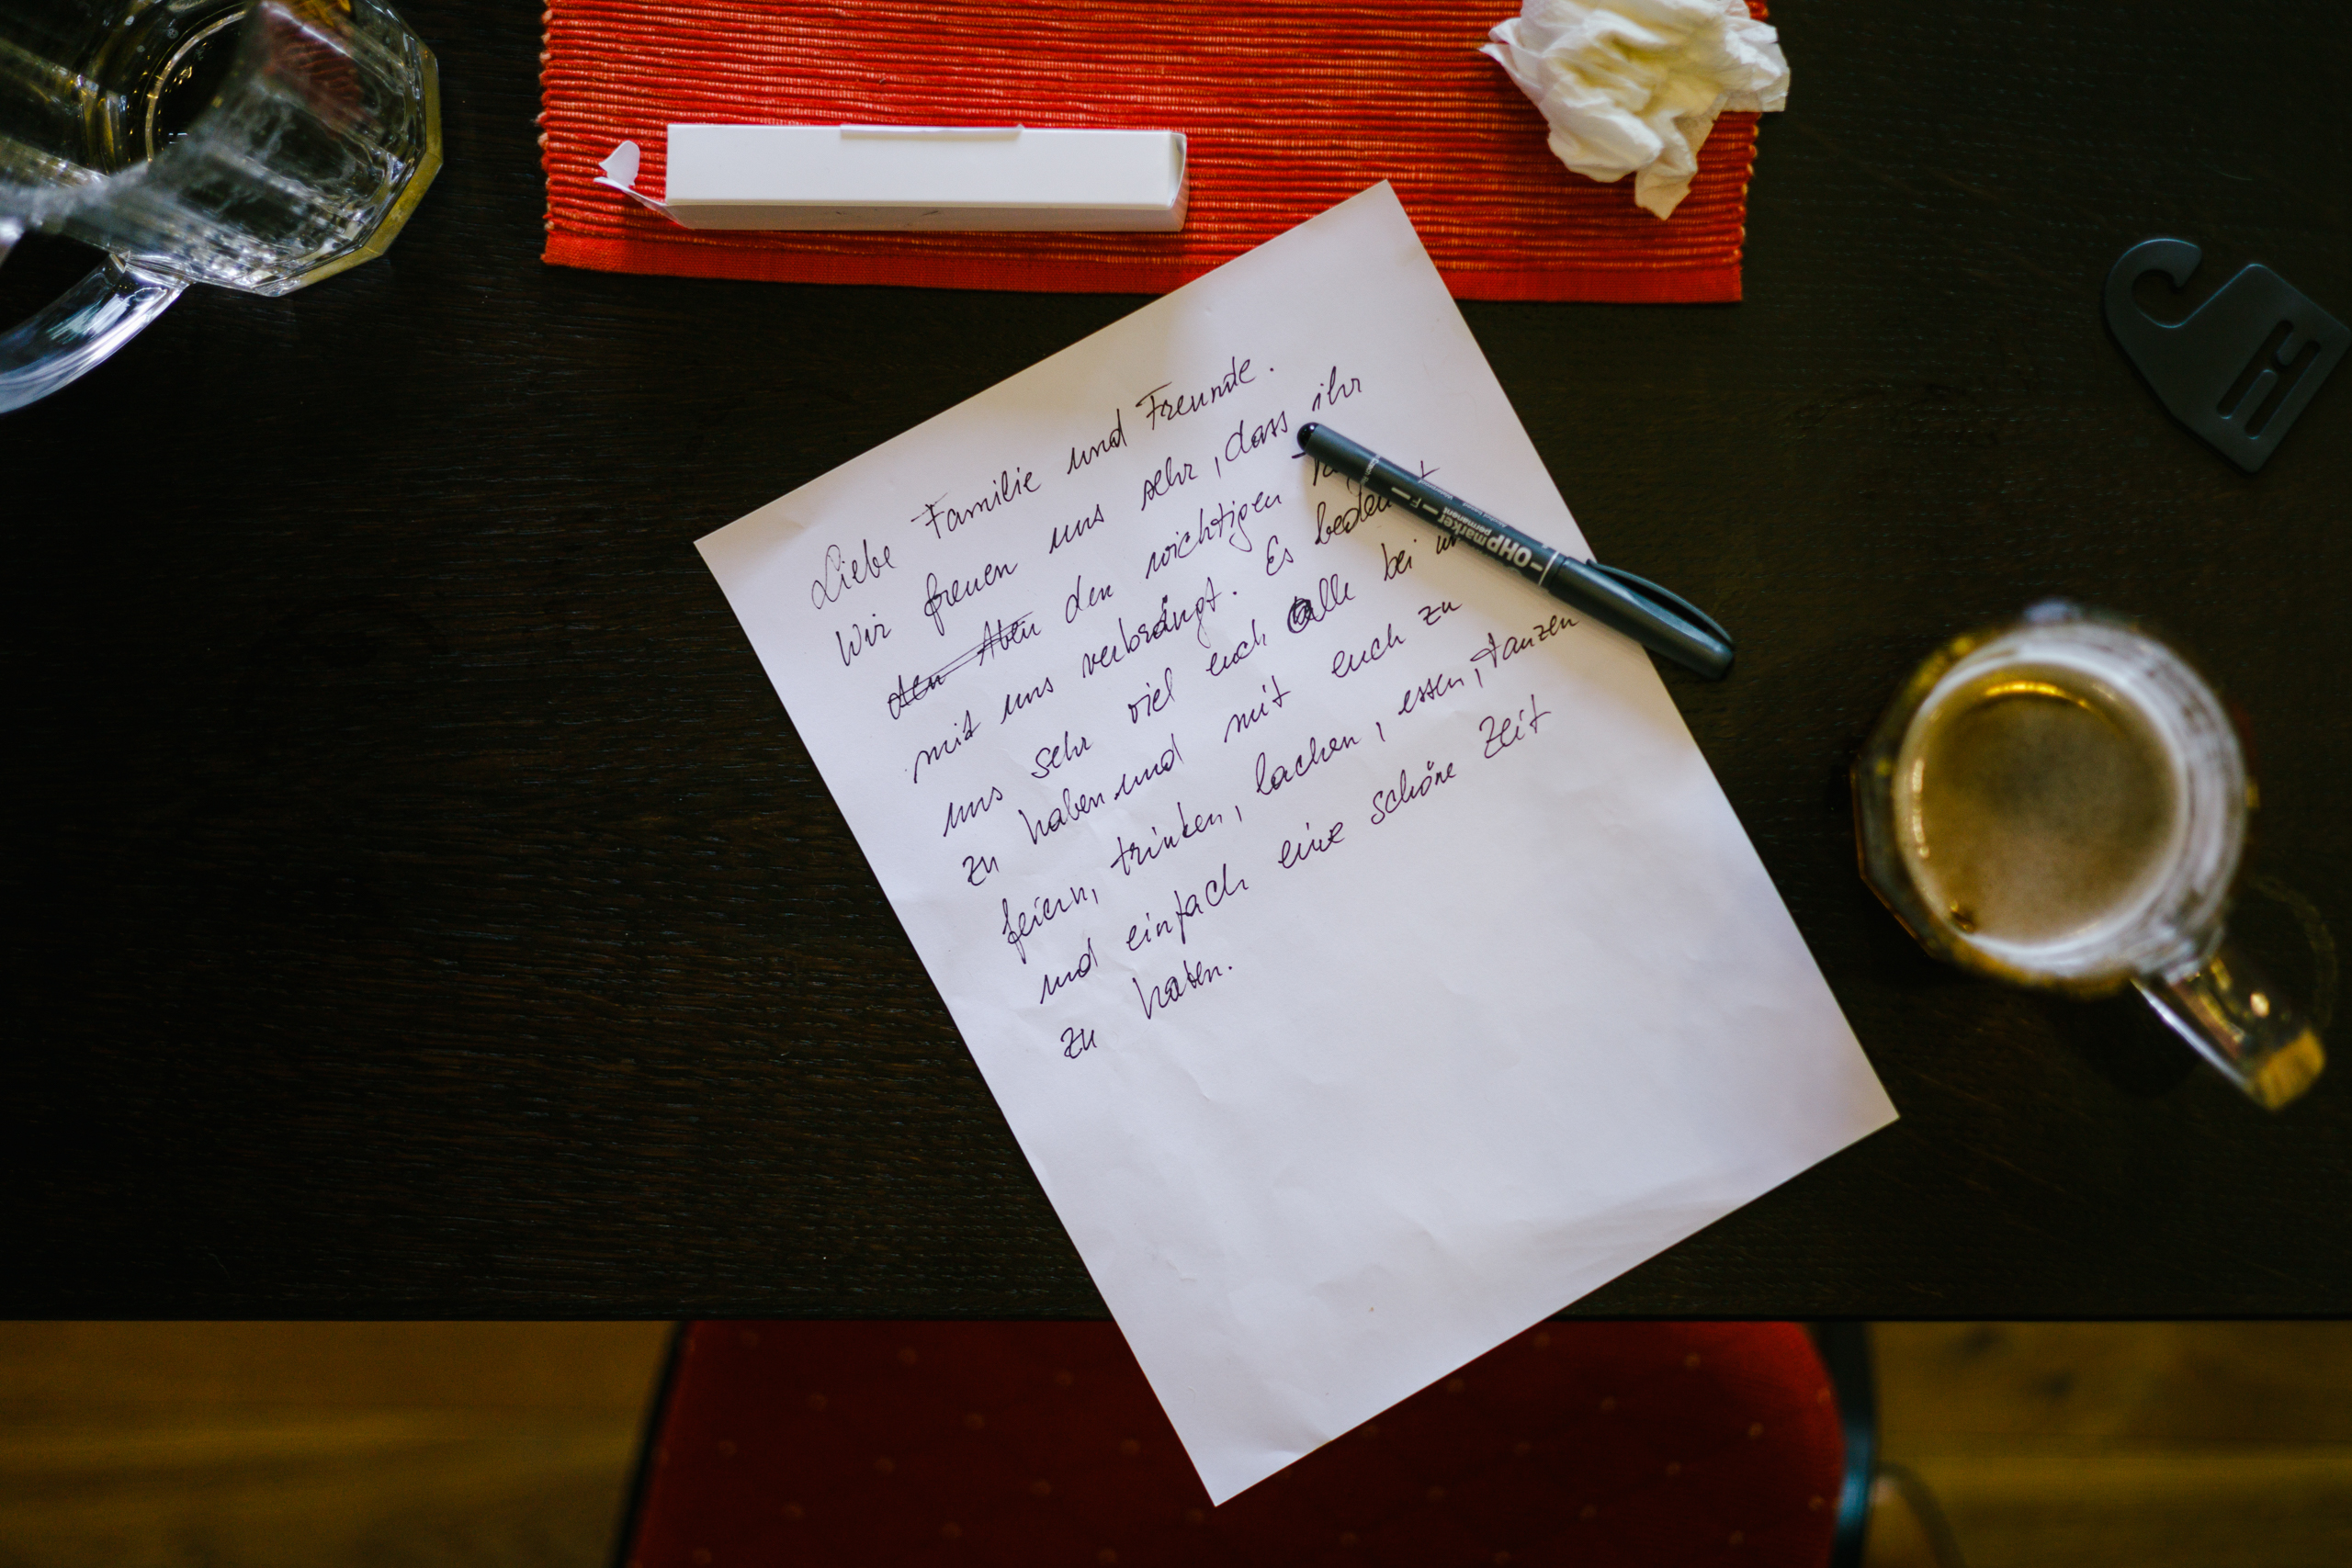 Liebe Familie und Freunde.
Wir freuen uns sehr, dass ihr
den Aben den wichtigen
mit uns verbrängt. Es bedeutet
uns sehr viel euch alle bei
zu haben und mit euch zu
feiern, trinken, lachen, essen, tanzen
und einfach eine schöne Zeit
zu haben.
OHPmarker - F
permanent